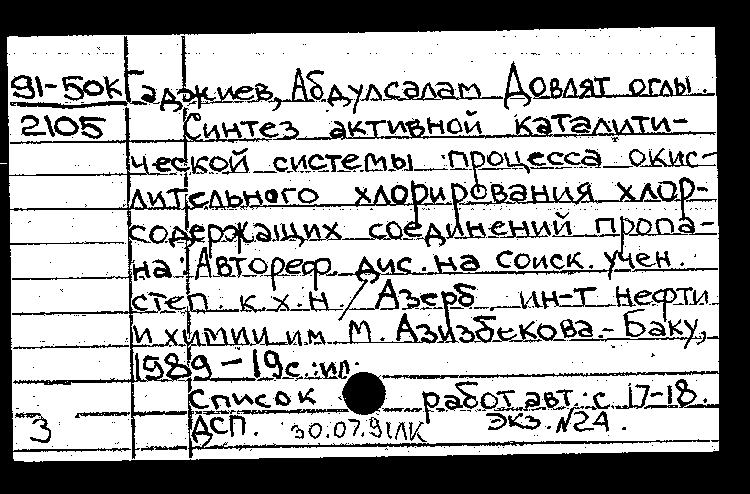 91-50К Гаджиев, Абдулсалам Довлят оглы.
2105 Синтез активной каталити-
ческой системы процесса окис-
лительного хлорирования хлор-
содержащих соединений пропа-
на: Автореф. дис. на соиск. учен.
степ. к.х.н. / Азерб. ин-т нефти
и химии им М. Азизбекова.- Баку,
1989 - 19с.:ил.
Список работ авт.: с 17-18.
3 ДСП. 30.07.91ЛК Экз. №24.